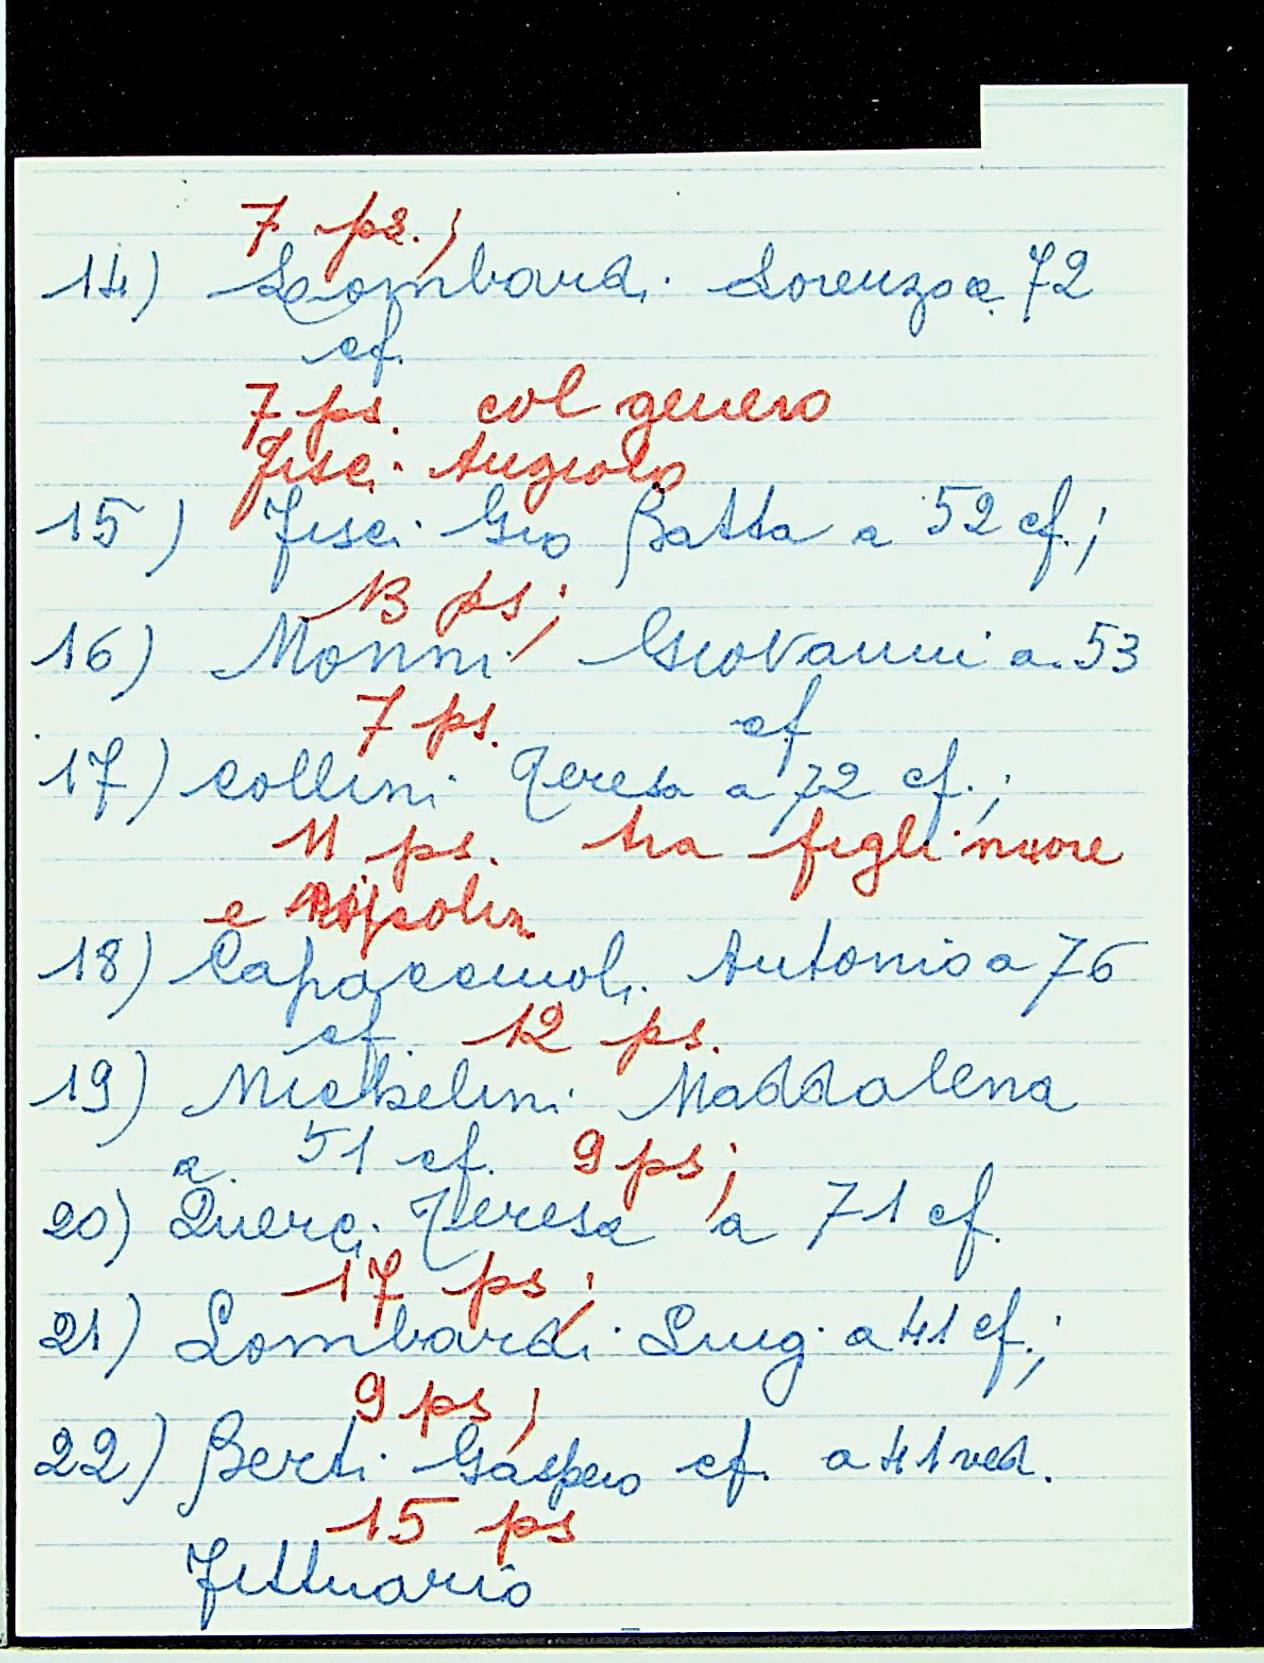 7 ps.;
14) Lombardi Lorenzo a. 72
cf.
7 ps. col genero
Fisci Angiolo
15) Fisci Gio Batta a 52 cf.;
13 ps;
16) Monni Giovanni a. 53
7 ps. cf
17) Collini Teresa a 72 cf.;
11 ps. tra figli nuore
e
18) Capaccioli Antonio a 76
cf. 12 ps.
19) Michelini Maddalena
a. 51 cf. 9 ps;
20) Querci Teresa a 71 cf.
17 ps;
21) Lombardi Luigi a 41 cf.;
9 ps;
22) Berti Gaspero cf. a 41 ved.
15 ps
Fittuario